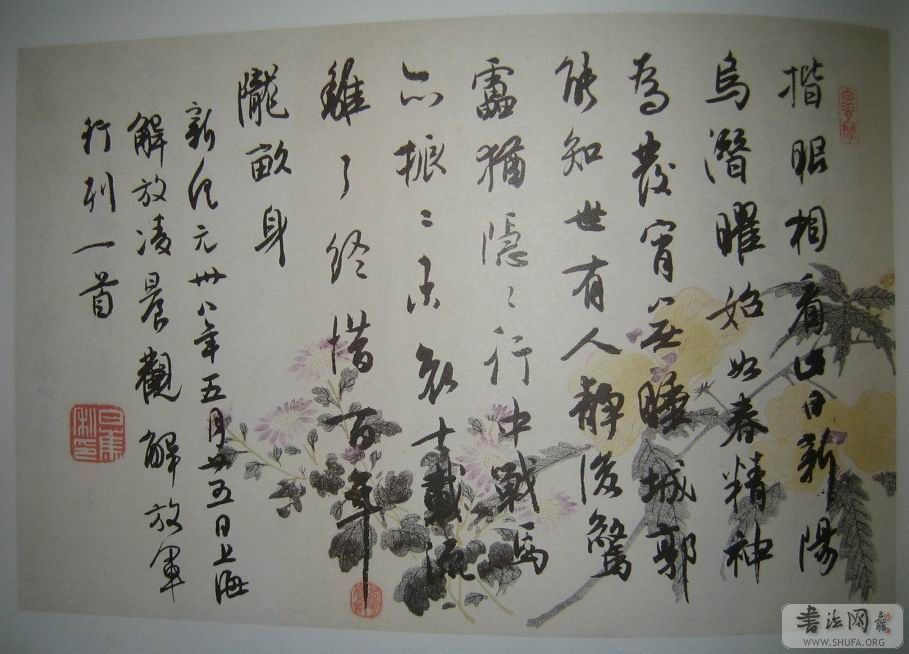 揩眼相看此日新陽
烏潛曜始如春精神
為發宵無睡城郭
能知世有人靜後驚
靁猶隱〻行中戰馬
亦振〻哀十載流
離了終惜百年
隴畝身
新紀元卅八年五月廿五日上海
解放凌晨觀解放軍
行列一首
白蕉私印
書法网
WWW.SHUFA.ORG